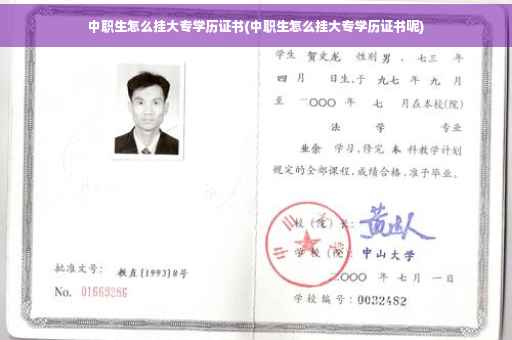 中职生怎么挂大专学历证书(中职生怎么挂大专学历证书呢)
学生 贺文龙 性别 男 、七三 年
四 月 日生,于 九七 年 九 月
至 二〇〇〇 年 七 月在本校(院)
法 学 专业
业余 学习,修完 本 科教学计划
规定的全部课程,成绩合格,准予毕业。
校 (院) 长:
学 校 (院): 中山大学
二〇〇〇 年 七 月 一 日
学校编号: 0032482
批准文号: 教直[1993]8号
No. 01669286